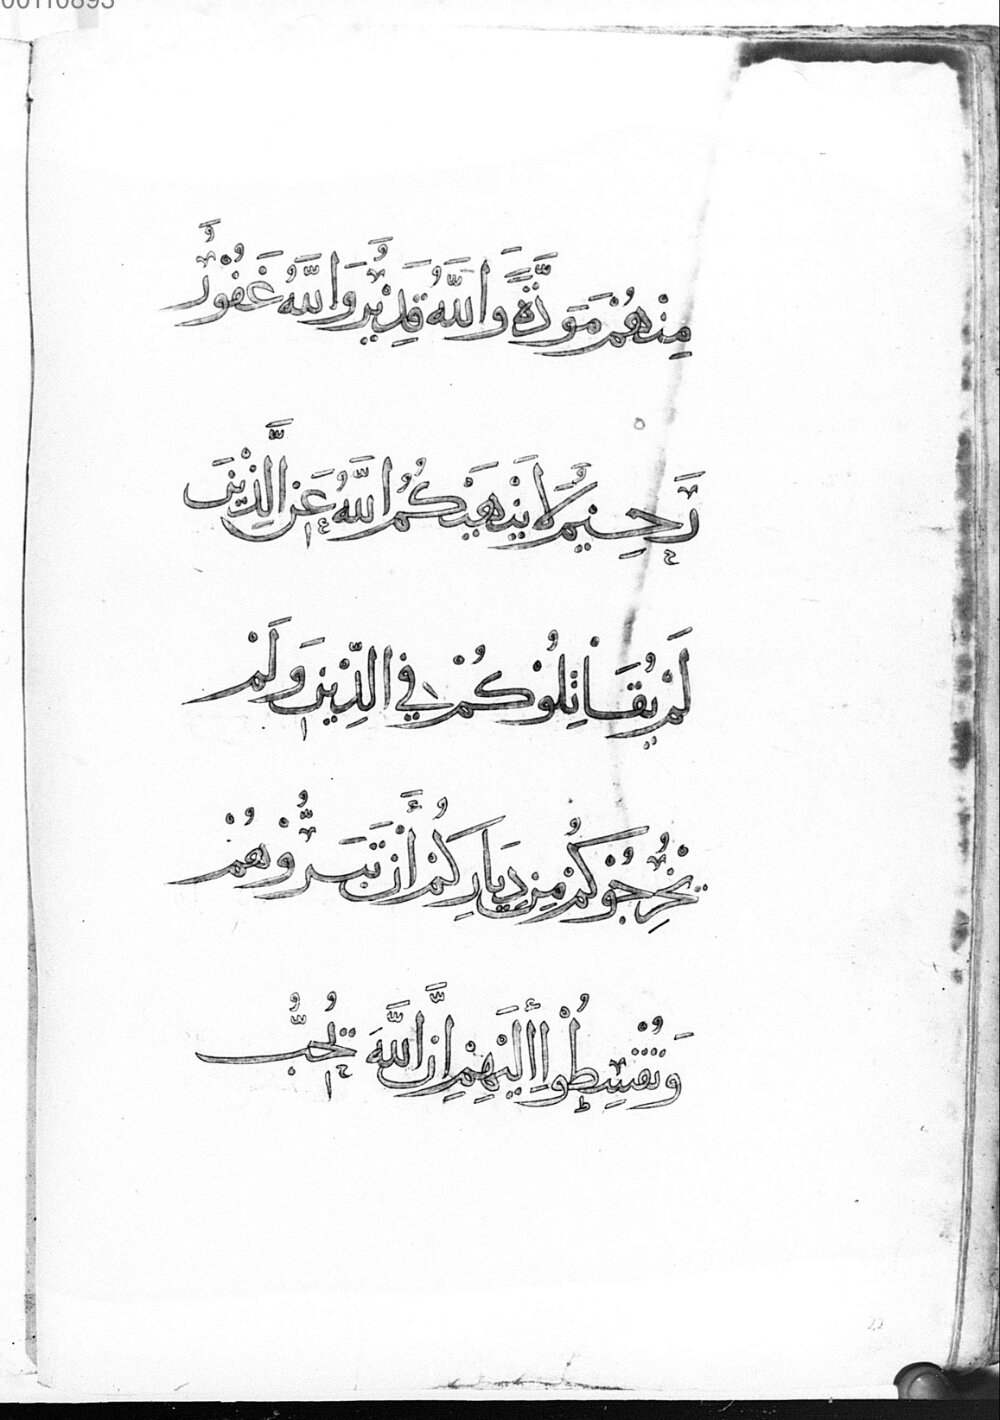 00110893
مِنْهُمْ مَوَدَّةً وَاللَّهُ قَدِيرٌ وَاللَّهُ غَفُورٌ
رَحِيمٌ لَا يَنْهَيكُمُ اللَّهُ عَنِ الَّذِينَ
لَمْ يُقَاتِلُوكُمْ فِي الدِّينِ وَلَمْ
يُخْرِجُوكُمْ مِنْ دِيَارِكُمْ أَنْ تَبَرُّوهُمْ
وَتُقْسِطُوا إِلَيْهِمْ إِنَّ اللَّهَ يُحِبُّ
22